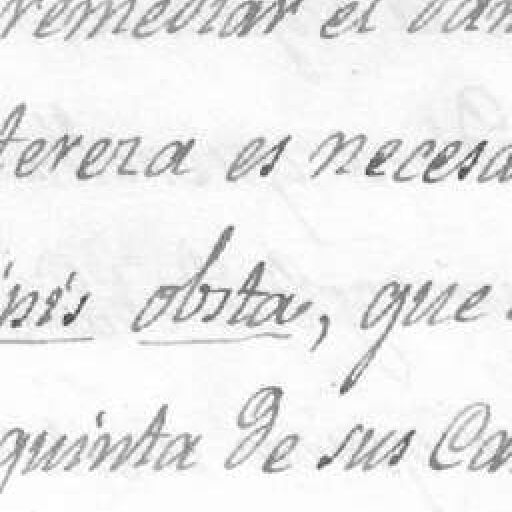 remediar el
tereza es necesa
ipiis obsta, que
quinta de sus Ca